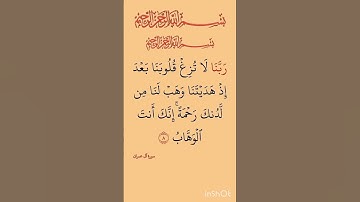 بسم الله الرحمن الرحيم
بسم الله الرحمن الرحيم
رَبَّنَا لَا تُزِغْ قُلُوبَنَا بَعْدَ
إِذْ هَدَيْتَنَا وَهَبْ لَنَا مِن
لَّدُنكَ رَحْمَةً ۚ إِنَّكَ أَنتَ
ٱلْوَهَّابُ ٨
سورة آل عمران
InShOt